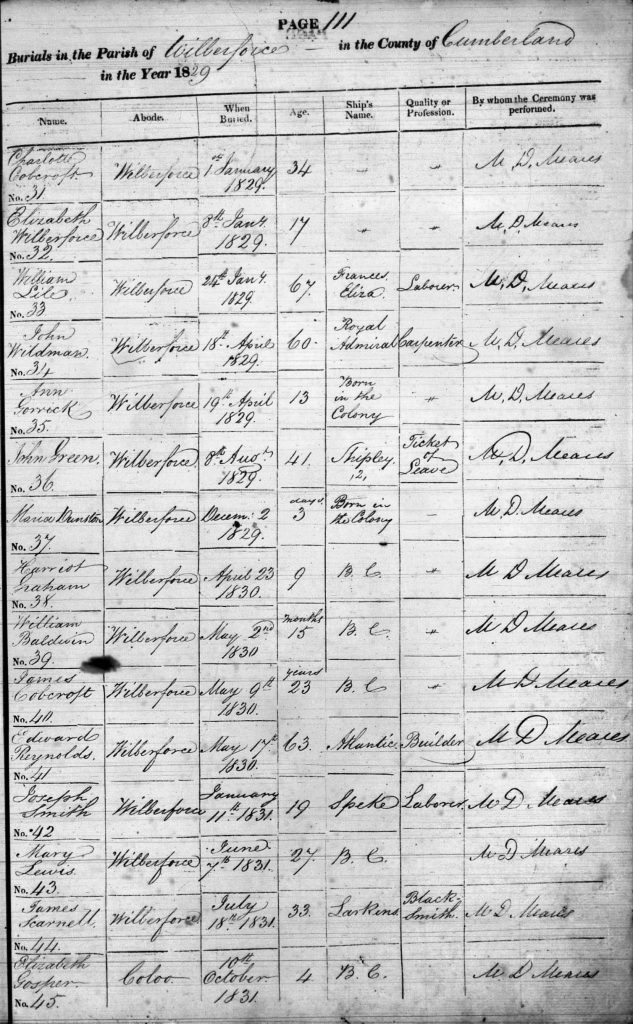 PAGE 111
Burials in the Parish of Wilberforce in the County of Cumberland
in the Year 1829
Name. Abode. When Buried. Age. Ship's Name. Quality or Profession. By whom the Ceremony was performed.
Charlotte Cobcroft No. 31. Wilberforce 1st January 1829. 34 " " M. D. Meares
Elizabeth Wilberforce No. 32. Wilberforce 8th Jany. 1829. 17 " " M. D. Meares
William Lile No. 33 Wilberforce 24th Jany. 1829. 67. Frances Eliza. Laborer M. D. Meares
John Wildman. No. 34 Wilberforce 18th April 1829. 60. Royal Admiral Carpenter M. D. Meares
Ann Gorrick No. 35. Wilberforce 19th April 1829. 13 Born in the Colony " M. D. Meares
John Green. No. 36 Wilberforce 8th Augt 1829. 41. Shipley 12, Ticket of Leave M. D. Meares
Maria Dunston No. 37. Wilberforce Decem: 2 1829. days 3 Born in the Colony " M. D Meares
Harriot Graham No. 38. Wilberforce April 23 1830. 9 B. C. " M D Meares
William Baldwin No. 39. Wilberforce May 2nd 1830 months 15 B. C. " M D Meares
James Cobcroft No. 40. Wilberforce May 9th 1830. years 23 B. C " M D Meares
Edward Reynolds. No. 41 Wilberforce May 17th 1830. 63. Atlantic Builder M D Meares
Joseph Smith No. 42 Wilberforce January 11th 1831. 19 Speke Laborer. M D Meares
Mary Lewis No. 43. Wilberforce June 7th 1831. 27 B. C. M D Meares
James Scarnell No. 44. Wilberforce July 18th 1831. 33. Larkins Black Smith. M D Meares
Elizabeth Gosper No. 45. Coloo 10th October 1831. 4 B. C. M D Meares